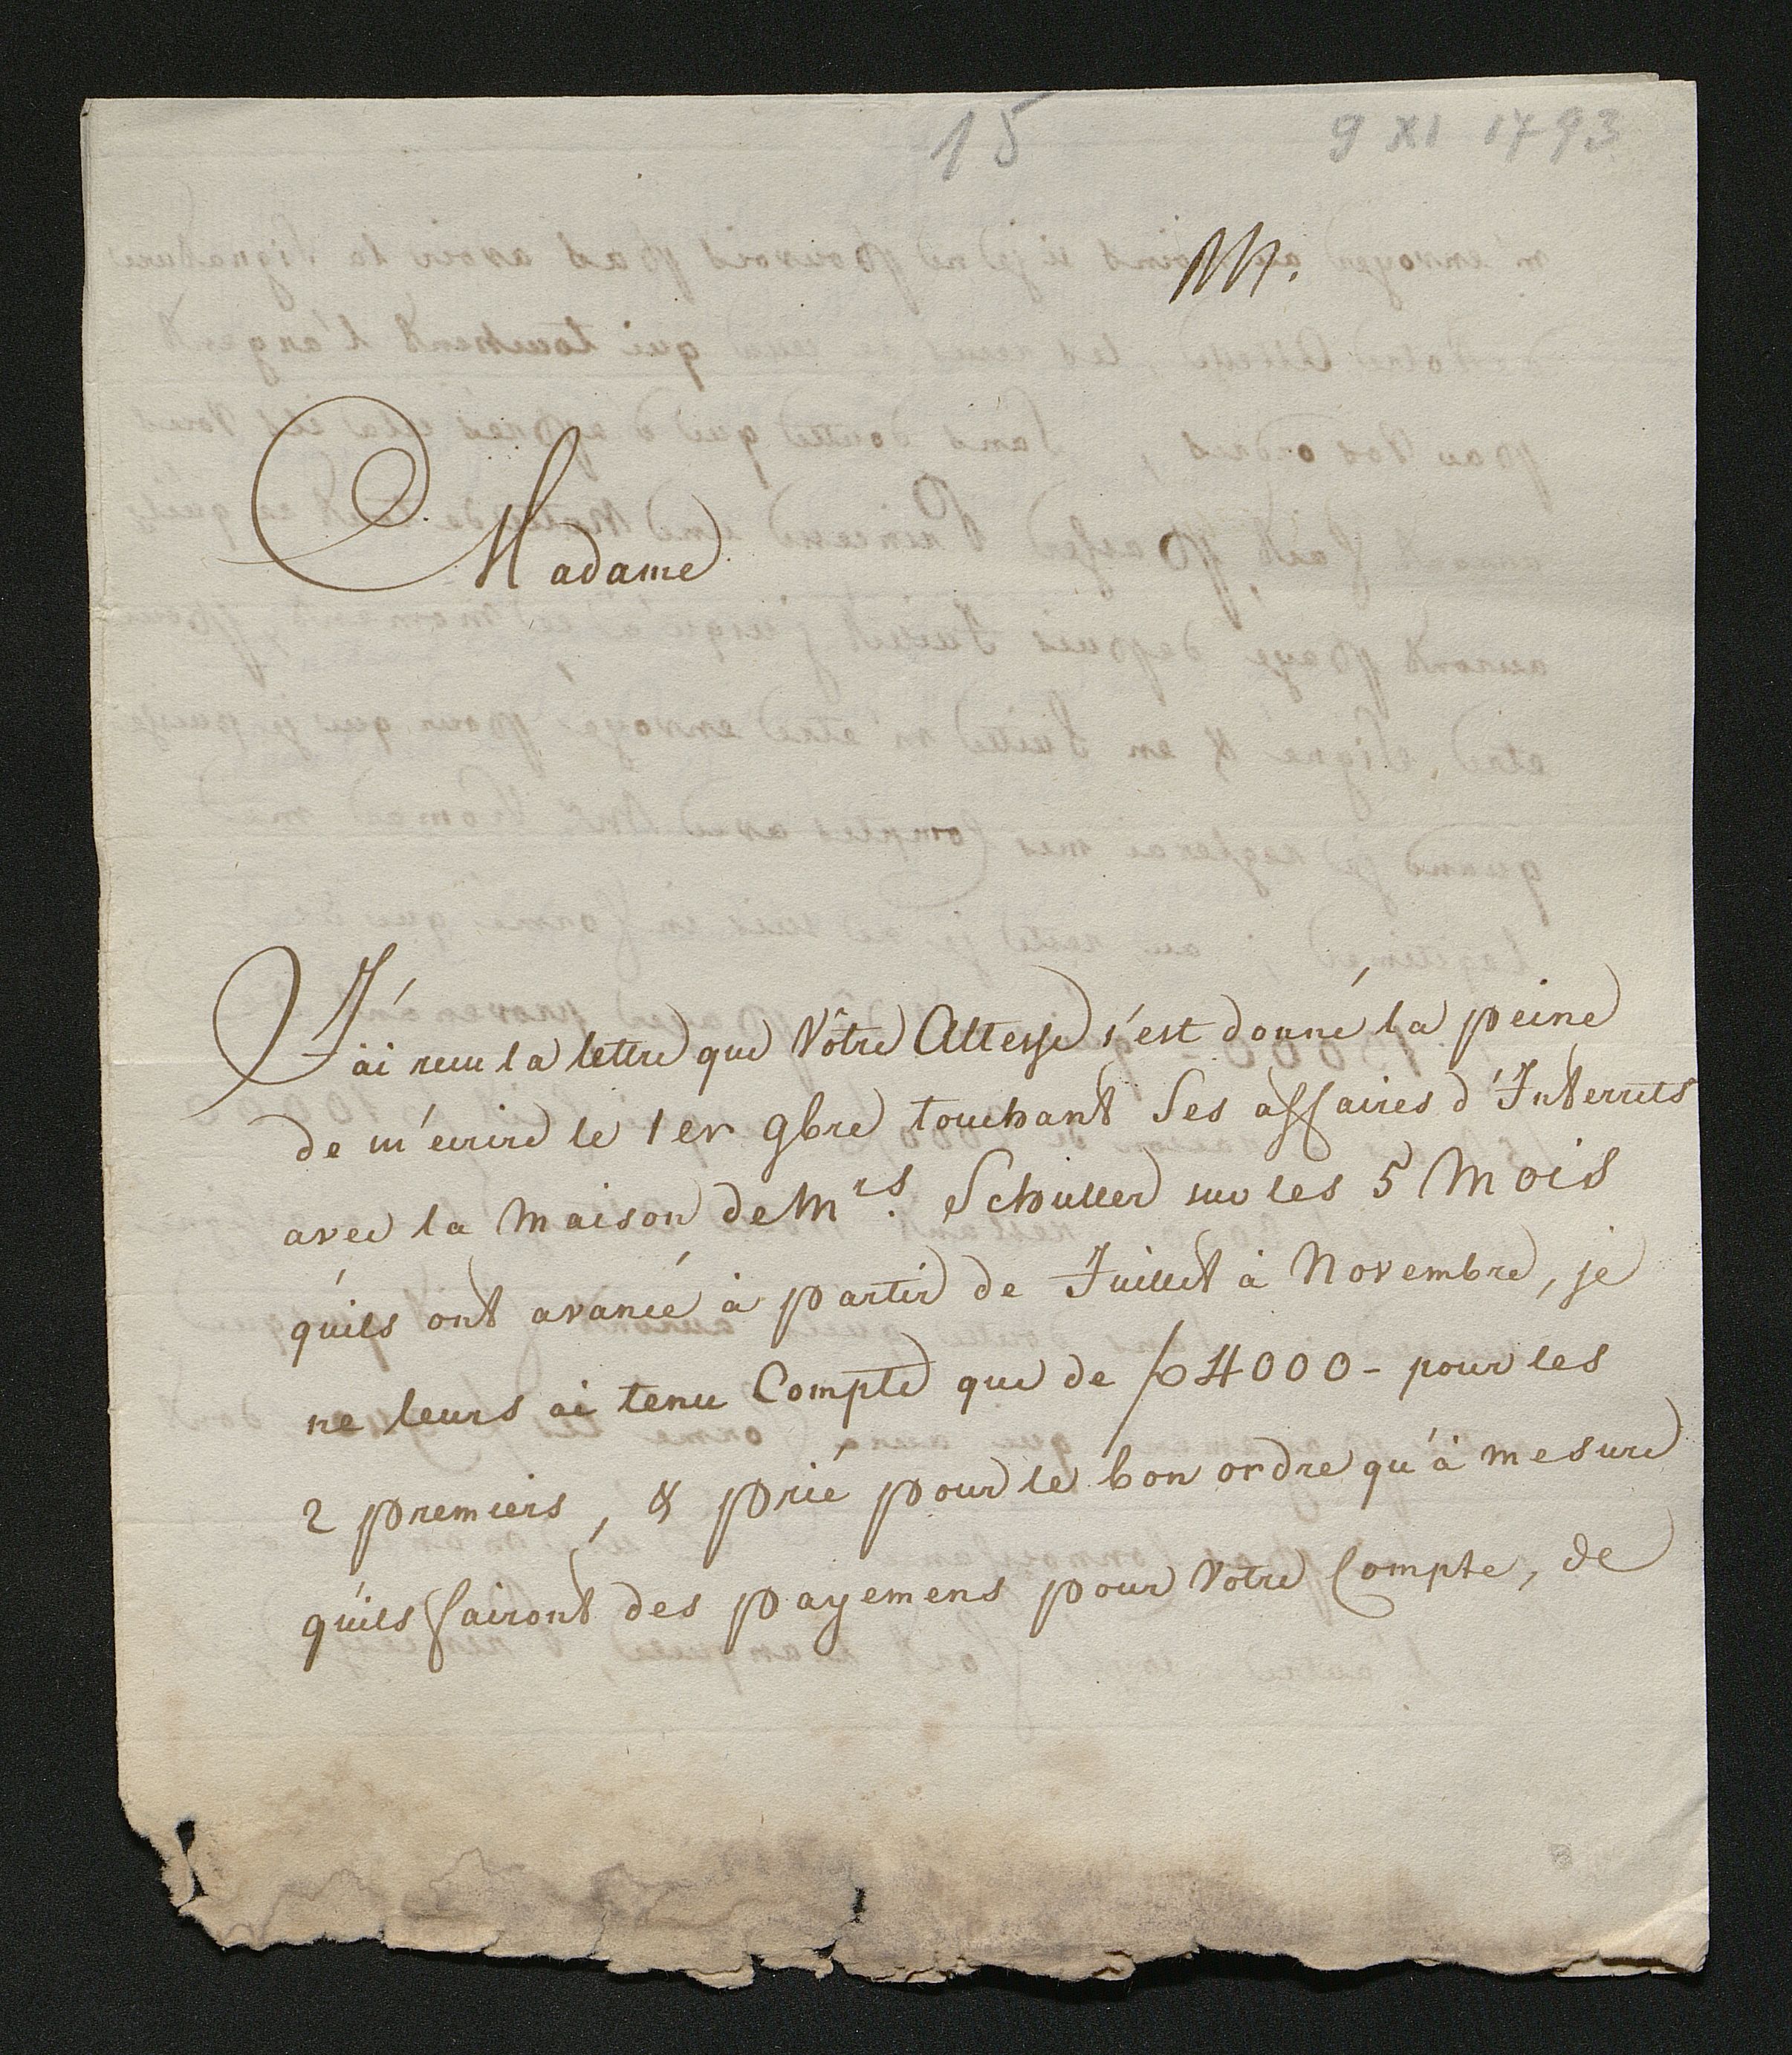 15
9 XI 1793
M.
Madame
J'ai recu la lettre que Vôtre Altesse s'est donné la peine
de m'ecrire le 1er 9bre touchant Ses affaires d'Interrets
avec la Maison de Mrs. Schuller sur les 5 Mois
qu'ils ont avancé à partir de Juillet à Novembre, je
ne leurs ai tenu Compte que de 4000- pour les
2 premiers, & prié pour le bon ordre qu'à mesure
qu'ils fairont des payemens pour Votre Compte, de